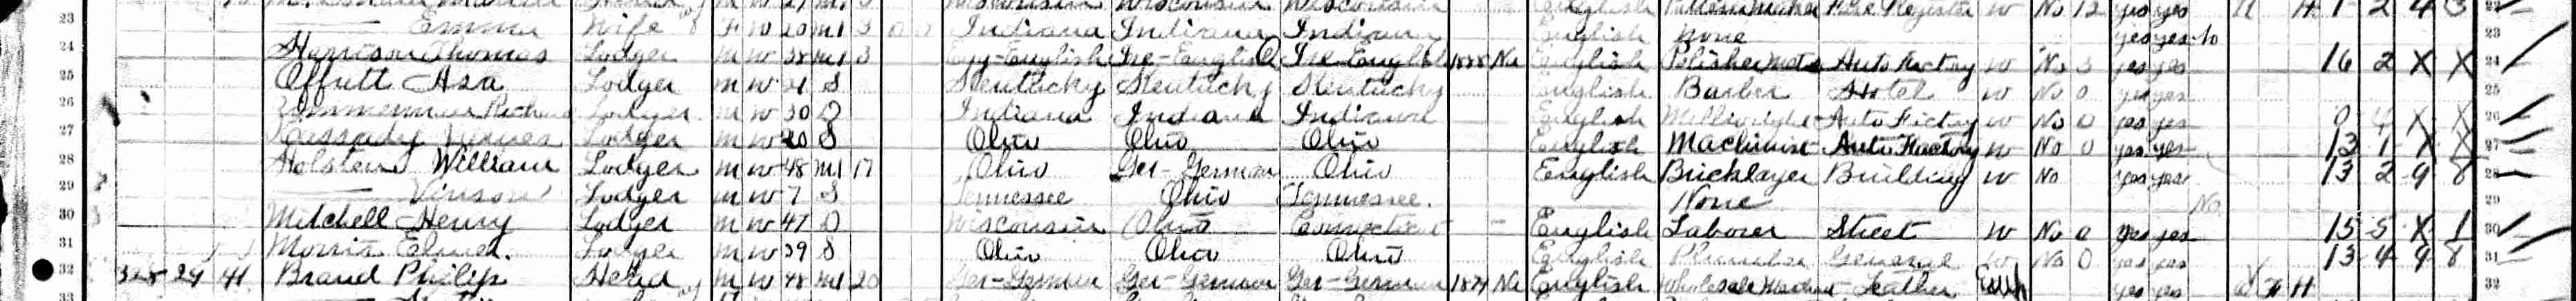 Wisconsin Wisconsin Wisconsin English W No 12 yes yes H 1 2 4 3
23 Emma Wife F W 20 M1 3 0 0 Indiana Indiana Indiana English None yes yes 23
24 Harrison Thomas Lodger M W 38 M1 3 Eng-English Ire-English Ire-English 1888 Na English Polisher Auto Factory W No 3 yes yes 16 2 X X 24
25 Offutt Asa Lodger M W 21 S Kentucky Kentucky Kentucky English Barber Hotel W No 0 yes yes 25
26 Zimmerman Lodger M W 30 D Indiana Indiana Indiana English Millwright Auto Factory W No 0 yes yes X X 26
27 Cassady James Lodger M W 20 S Ohio Ohio Ohio English Machinist Auto Factory W No 0 yes yes 13 1 X X 27
28 Holstein William Lodger M W 48 M1 17 Ohio Ger-German Ohio English Bricklayer Building W No yes yes 13 2 9 8 28
29 Vinson Lodger M W 7 S Tennessee Ohio Tennessee None No 29
30 Mitchell Henry Lodger M W 47 D Wisconsin Ohio Connecticut English Laborer Street W No 0 yes yes 15 5 X 1 30
31 Morris Elmer Lodger M W 39 S Ohio Ohio Ohio English Plumber General W No 0 yes yes 13 4 9 8 31
32 328 29 41 Brand Philip Head M W 48 M1 20 Ger-German Ger-German Ger-German 1874 Na English Leather Emp yes yes H 32
33